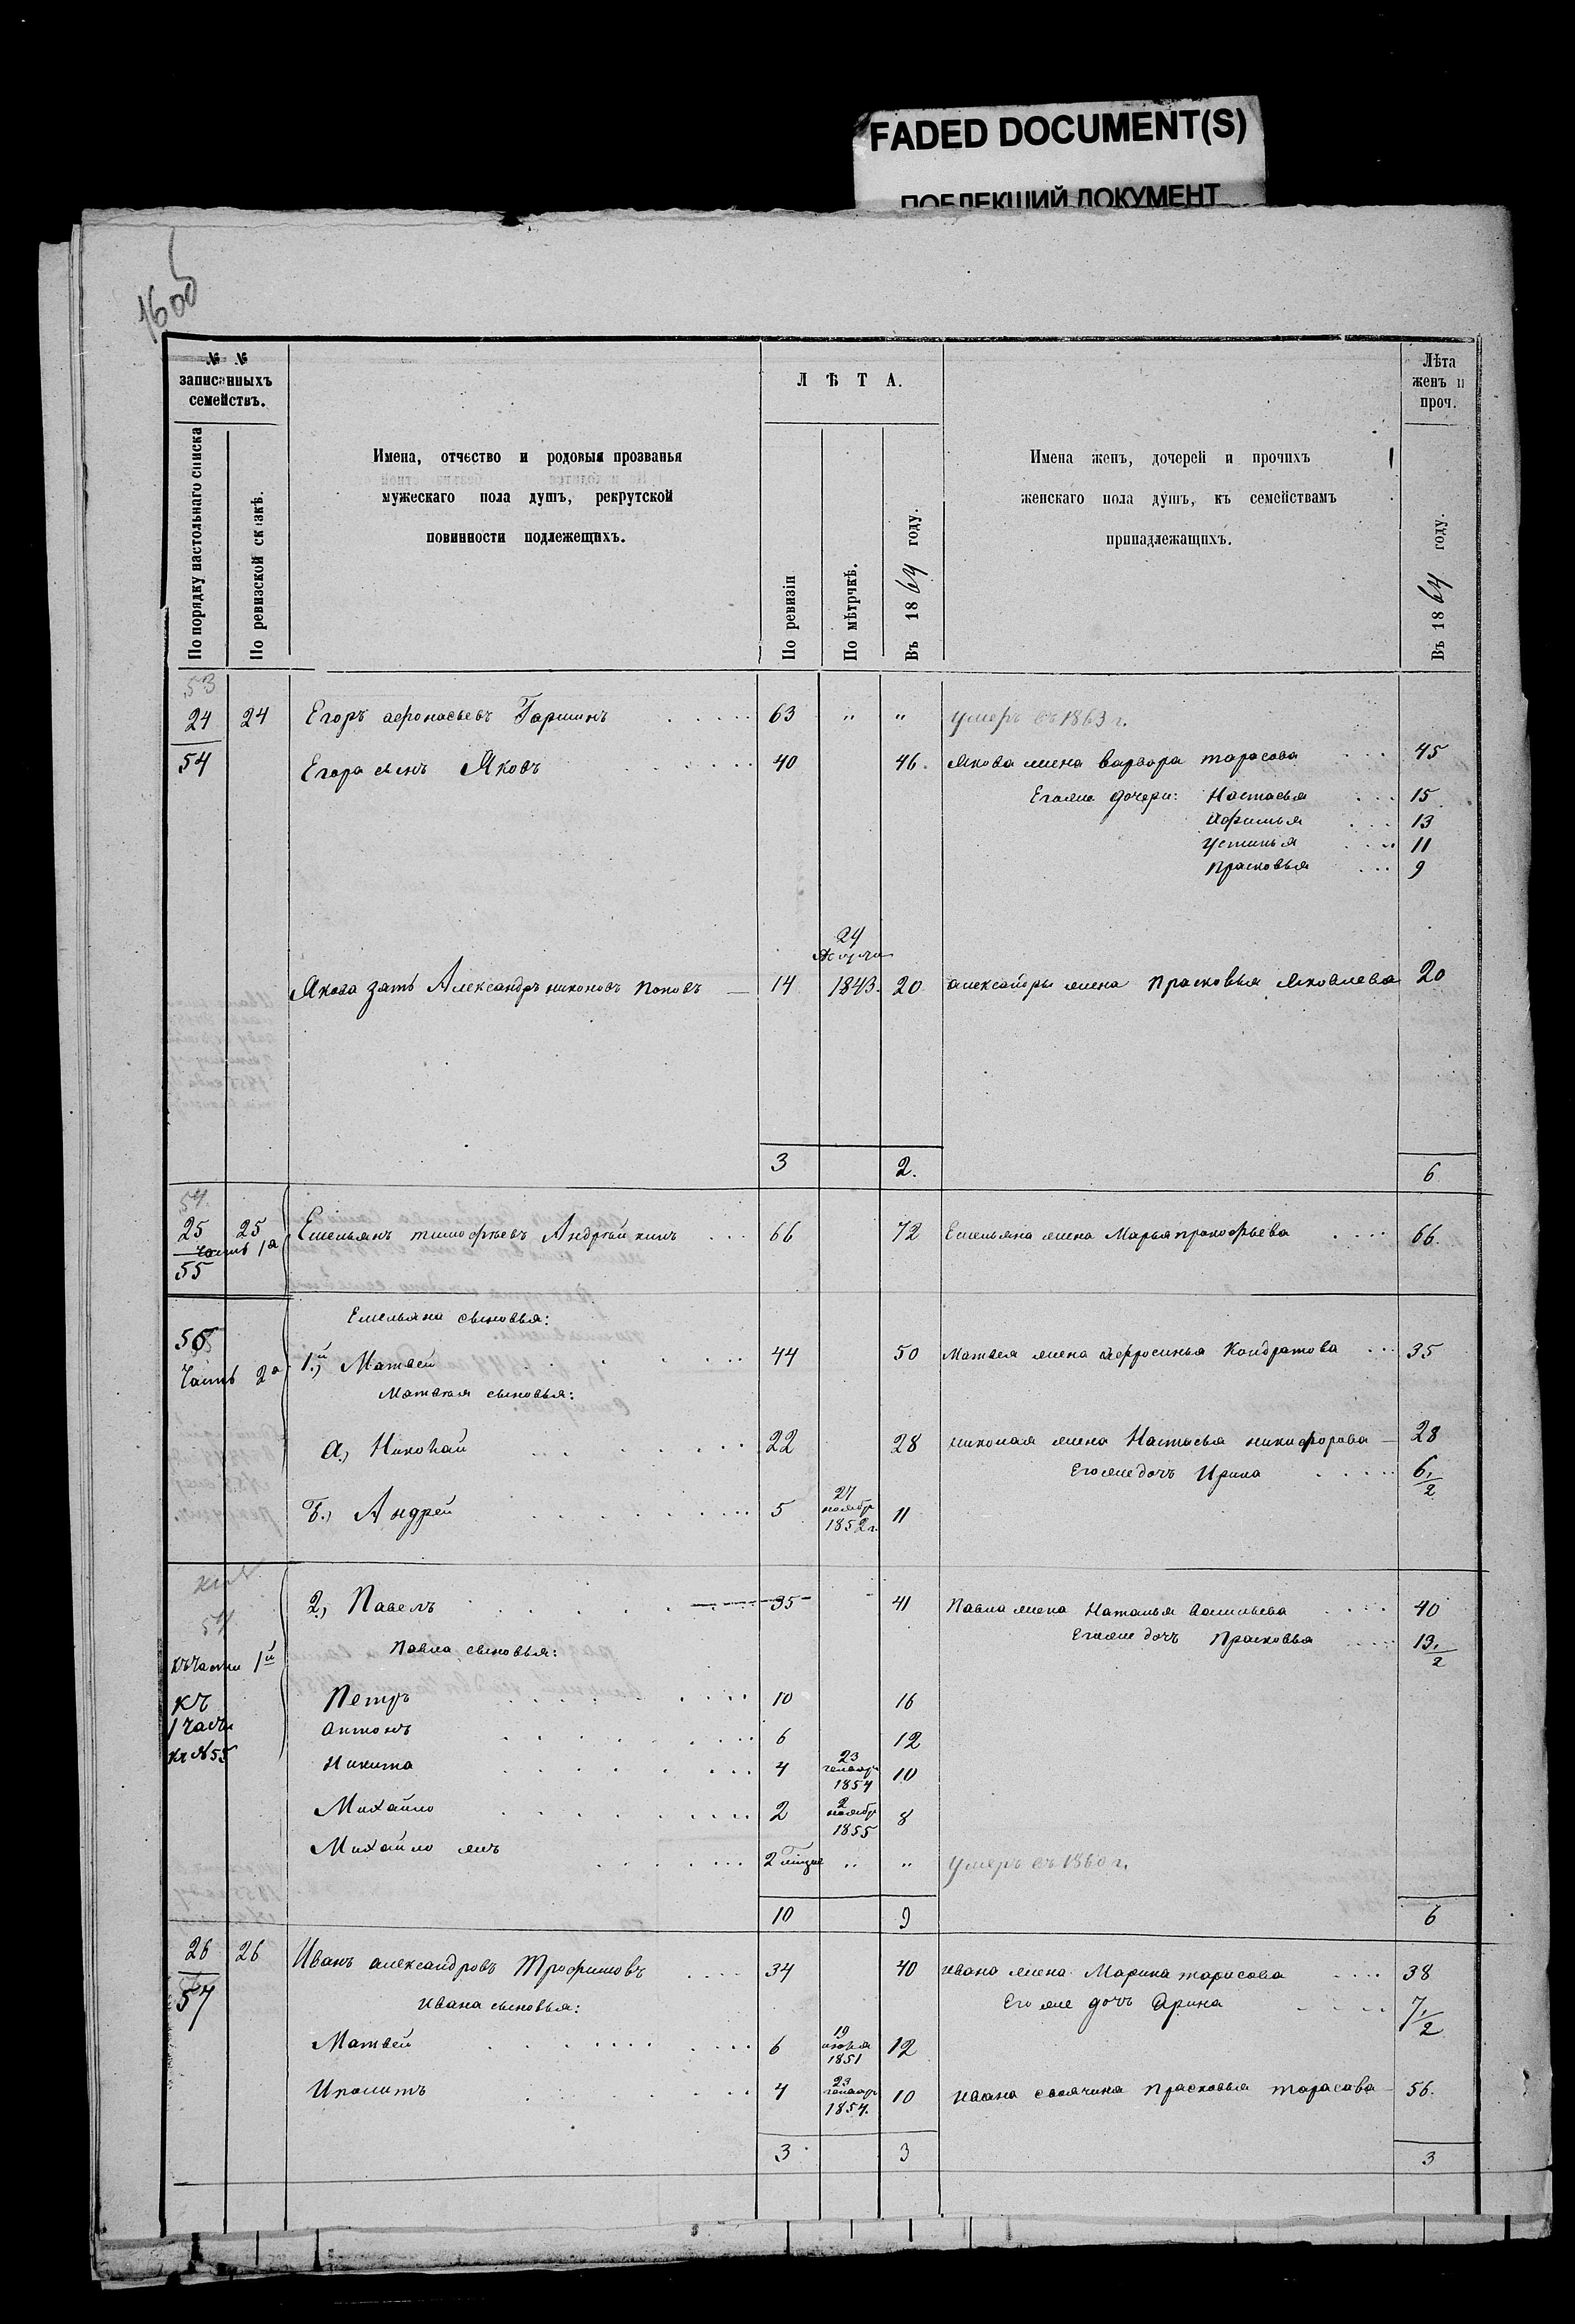 FADED DOCUMENT(S)
ПОБЛЕКШИЙ ДОКУМЕНТ
160об
№ № записанныхъ семействъ.
По порядку настольнаго списка
По ревизской сказкѣ.
Имена, отчество и родовыя прозванья
мужескаго пола душъ, рекрутской
повинности подлежещихъ.
ЛѢТА.
По ревизіи
По мѣтрчкѣ.
Въ 1864 году.
Имена женъ, дочерей и прочихъ
женскаго пола душъ, къ семействамъ
принадлежащихъ.
Лѣта женъ и проч.
Въ 1864 году.
53
24 24 Егоръ афонасьевъ Гаршинъ 63 " " умеръ въ 1863 г.
54 Егора сынъ Яковъ 40 46. Якова жена варвара тарасова 45
Егоже дочери: Настасья 15
Афимья 13
Устинья 11
Прасковья 9
24
1843.
Якова зять Александръ никоновъ Поповъ 14 20 александры жена Прасковья Яковлева 20
3 2. 6
54
25 25 Емельянъ тимофѣевъ Андрѣйкинъ 66 72 Емельяна жена Марья прокофьева 66.
часть 1я
55
Емельяна сыновья:
56
Часть 2я 1й, Матвей 44 50 Матвея жена Афросинья Кондратова 35
Матвѣя сыновья:
а, Николай 22 28 николая жена Настасья никифорова 28
Егоже дочь Ирина 6 1/2
Б, Андрей 5 27 ноябр 1852 г. 11
57
2, Павелъ 35 41 Павла жена Наталья васильева 40
Павла сыновья: Егоже дочь Прасковья 13 1/2
къ части 1й
къ
1 части
къ №55
Петръ 10 16
антонъ 6 12
Никита 4 23 генваря 1854 10
Михайло 2 2 ноябр 1855 8
Михайло жъ 2 " " умеръ въ 1860 г.
10 9 6
26 26 Иванъ александровъ Трофимовъ 34 40 ивана жена Марина тарасова 38
57 Ивана сыновья: Его же дочь Арина 7 1/2
Матвей 6 19 1851 12
Иполитъ 4 23 генваря 1854. 10 ивана своячина прасковья тарасова 56.
3 3 3